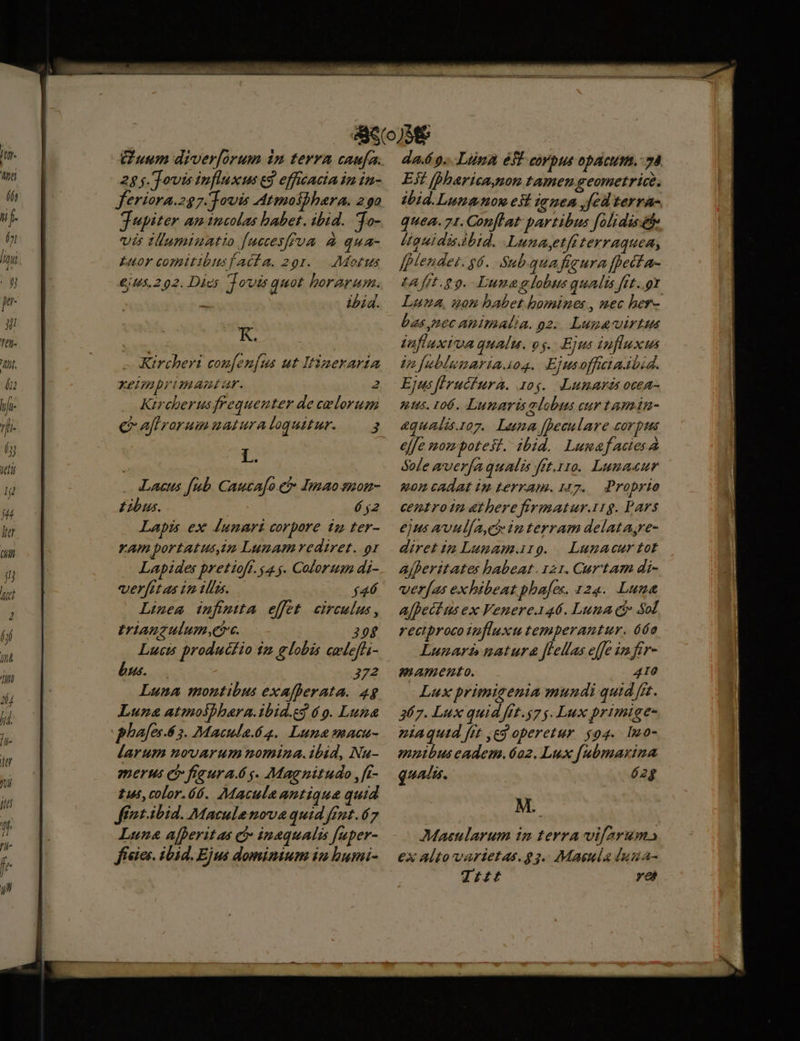 fluum diversorum in terra causa.
285. Jovis influxus & efficacia in in-
feriora. 287. Jovis Atmosphæra. 290
Jupiter an incolas habet. ibid. Jo-
vis illuminatio successiva à qua-
tuor comitibus facta. 291. Motus
ejus. 292. Dies Jovis quot horarum.
ibid.
K.
Kircheri consensus ut Itineraria
reimprimantur. 2
Kircherus frequenter de cælorum
& astrorum natura loquitur. 3
L.
Lacus sub Caucaso & Imao mon-
tibus. 652
Lapis ex lunari corpore in ter-
ram portatus, in Lunam rediret. 91
Lapides pretiosi. 545. Colorum di-
versitas in illis. 546
Linea infinita esset circulus,
triangulum, &c. 398
Lucis productio in globis cælesti-
bus. 372
Luna montibus exasperata. 48
Lunæ atmosphæra. ibid. & 69. Lunæ
phases. 63. Maculæ. 64. Lunæ macu-
larum novarum nomina. ibid, Nu-
merus & figura. 65. Magnitudo, si-
tus, color. 66. Maculæ antiquæ quid
sint. ibid. Maculæ novæ quid sint. 67
Lunæ asperitas & inæqualis super-
ficies. ibid. Ejus dominium in humi-
da. 69. Luna est corpus opacum. 70
Est sphærica, non tamen geometricè.
ibid. Luna non est ignea, sed terra-
quea. 71. Constat partibus solidis &
liquidis. ibid. Luna, etsi terraquea,
splendet. 86. Sub qua figura specta-
ta sit. 89. Lunæ globus qualis sit. 91
Luna, non habet homines, nec her-
bas, nec animalia. 92. Lunæ virtus
influxiva qualis. 95. Ejus influxus
in sublunaria. 104. Ejus officia. ibid.
Ejus structura. 105. Lunaris ocea-
nus. 106. Lunaris globus cur tam in-
æqualis. 107. Luna speculare corpus
esse non potest. ibid. Lunæ facies à
Sole aversa qualis sit. 110. Luna cur
non cadat in terram. 117. Proprio
centro in æthere firmatur. 118. Pars
ejus avulsa, & in terram delata, re-
diret in Lunam. 119. Luna cur tot
asperitates habeat. 121. Cur tam di-
versas exhibeat phases. 124. Lunæ
aspectus ex Venere. 146. Luna & Sol
reciproco influxu temperantur. 660
Lunaris natura stellas esse in fir-
mamento. 410
Lux primigenia mundi quid sit.
367. Lux quid sit. 575. Lux primige-
nia quid sit, & operetur 594. In o-
mnibus eadem. 602. Lux submarina
qualis. 628
M.
Macularum in terra visarum
ex alto varietas. 83. Macula luna-
Tttt res